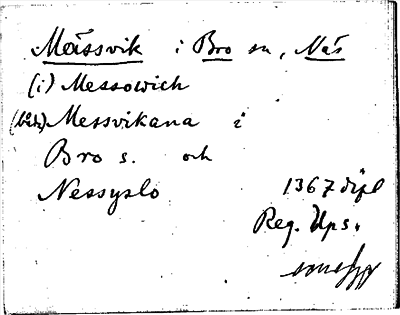 Mässvik i Bro sn, Näs
(i) Messowich
(båda) Messvikana i
Bro s. och
Nessyslo
1367 dipl
Reg. Ups.